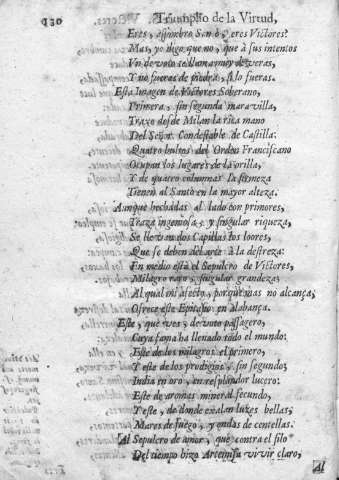 230 Triumpho de la Virtud,
Eres, assombro San o, eres Victores?
Mas, yo digo que no, que à sus intentos
Vn devoto te llama muy de veras,
Y no fueras de piedra, si lo fueras.
Esta Imagen de Victores Soberano,
Primera, sin segunda maravilla,
Traxo desde Milan la rica mano
Del Señor Condestable de Castilla:
Quatro bultos del Orden Franciscano
Ocupan los lugares de la orilla,
Y de quatro columnas la firmeza
Tienen al Santo en la mayor alteza.
Aunque hechadas al lado con primores,
Traza ingeniosa, y singular riqueza,
Se llevan dos Capillas los loores,
Que se deben del arte à la destreza:
En medio està el Sepulcro de Victores,
Milagro raro, y singular grandeza;
Al qual mi afecto, porque mas no alcança,
Ofrece este Epitafio en alabança.
Este, que ves, devoto passagero,
Cuya fama ha llenado todo el mundo:
Este de los milagros el primero,
Y este de los prodigios, sin segundo;
India en oro, en resplandor lucero:
Este de aromas mineral fecundo,
Y este, de donde exalan luzes bellas,
Mares de fuego, y ondas de centellas.
Al Sepulcro de amor, que contra el filo
Del tiempo hizo Artemisa vivir claro,
Al